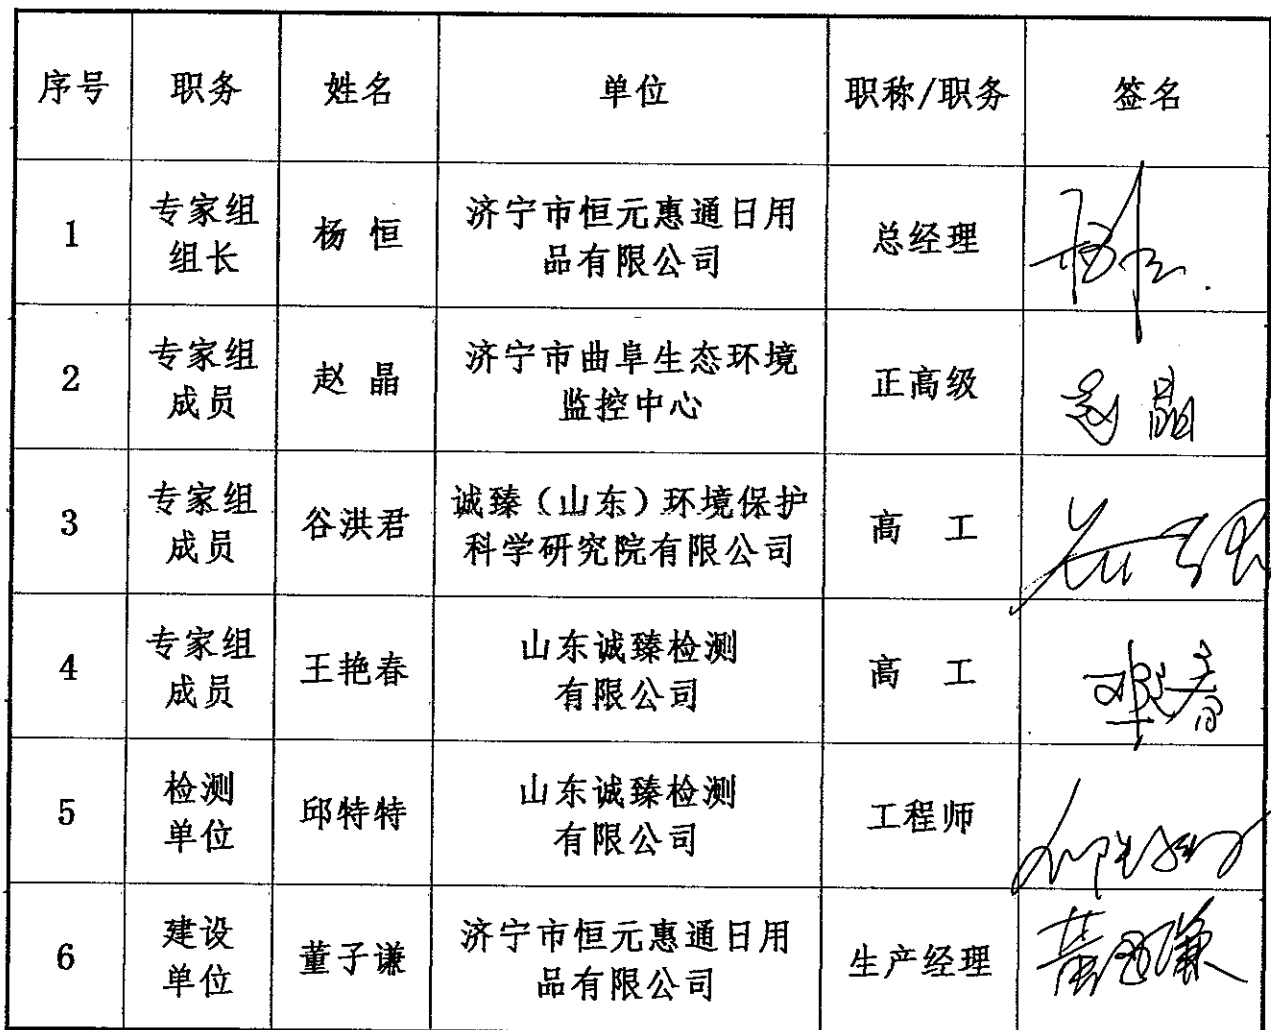 序号 职务 姓名 单位 职称/职务 签名
1 专家组组长 杨恒 济宁市恒元惠通日用品有限公司 总经理 杨恒
2 专家组成员 赵晶 济宁市曲阜生态环境监控中心 正高级 赵晶
3 专家组成员 谷洪君 诚臻（山东）环境保护科学研究院有限公司 高工
4 专家组成员 王艳春 山东诚臻检测有限公司 高工 王艳春
5 检测单位 邱特特 山东诚臻检测有限公司 工程师 邱特特
6 建设单位 董子谦 济宁市恒元惠通日用品有限公司 生产经理 董子谦